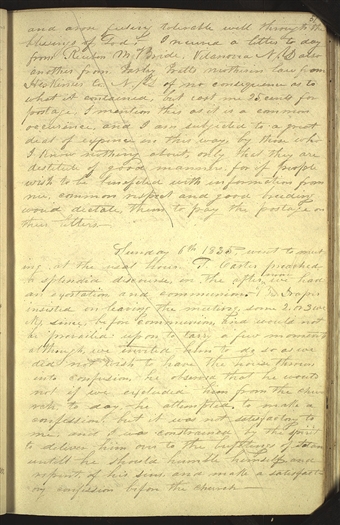 and am feeling tolerable well through the
blessing of God. I received a letter to day
from Reuben McBride, Villanova N.Y. also
another from Parley Pratts mother in law from
Herkimer Co. N.Y. of no consequence as to
what it contained, but cost me 25 cents for
postage. I mention this as it is a common
occurence, and I am subjected to a great
deal of expence in this way, by those who
I know nothing about, only that they are
destitute of good manners, for if people
wish to be benefited with information from
me, common respect and good breeding
would dictate them to pay the postage on
their letters.—
Sunday 6th 1835. went to meet-
ing at the usual hour. G. Carter preached
a splendid discourse, in the after noon we had
an exortation, and communion.
insisted on leaving the meeting some 2 or 3
before communion, and would not
be prevailed upon to tarry a few moments
although, we invited him to do so as we
did not wish to have the house thrown
into confusion, he observed that he would
not if we excluded him from the church
to day, he attempted to make a
confession, but it was not satisfactory to
me and I was constrained by the spirit
to deliver him over to the buffetings of satan
untill he should humble himself, and
repent of his sins, and make a satisfactory
confession before the church—